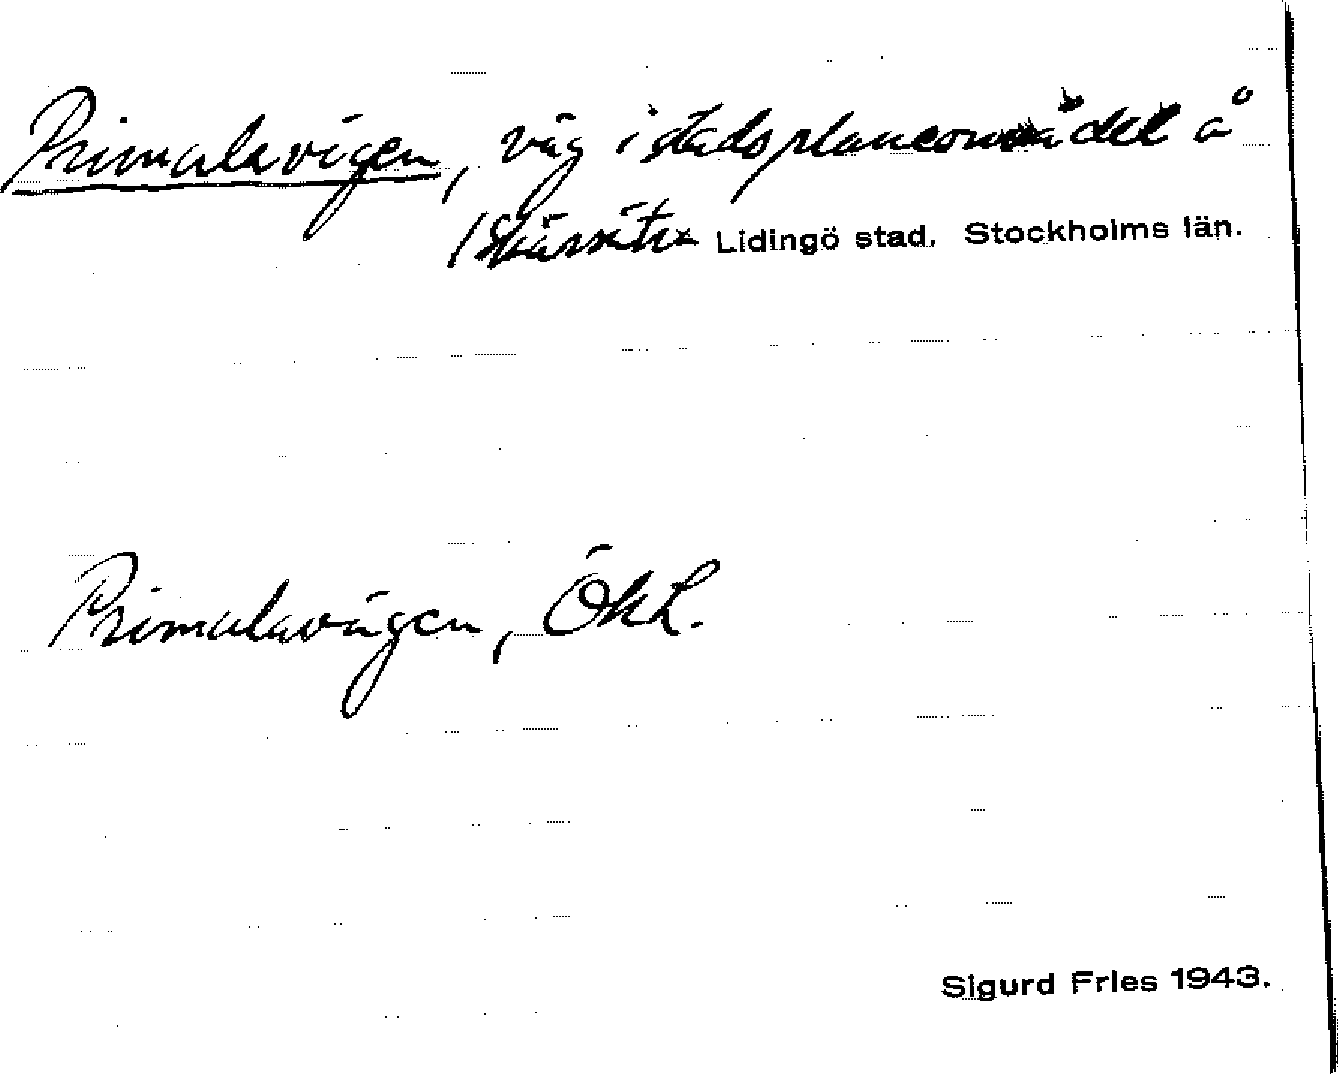 Primulavägen, väg i stadsplaneområdet å
/Skärsätra Lidingö stad. Stockholms län.
Primulavägen, ÖkL.
Sigurd Fries 1943.